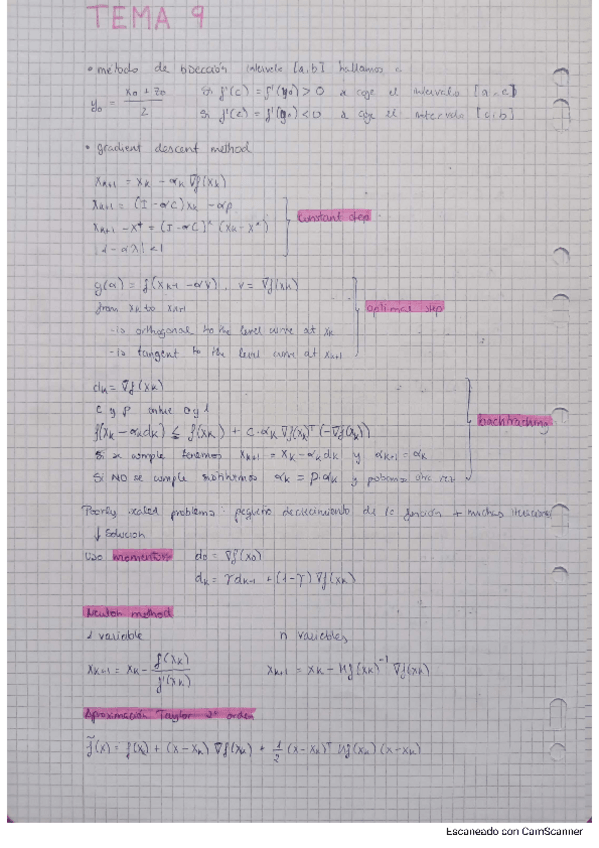 TEMA 9
• método de bisección intervalo [a,b] hallamos c
y₀ = (x₀ + z₀)/2 Si f'(c) = f'(y₀) > 0 se coge el intervalo [a,c]
Si f'(c) = f'(y₀) < 0 se coge el intervalo [c,b]
• gradient descent method
xₖ₊₁ = xₖ - αₖ ∇f(xₖ)
xₖ₊₁ = (I - αC)xₖ - αp
constant step
xₖ₊₁ - x* = (I - αC)ᵏ (xₖ - x*)
|1 - αλ| < 1
g(α) = f(xₖ₊₁ - αv), v = ∇f(xₖ)
from xₖ to xₖ₊₁
optimal step
- is orthogonal to the level curve at xₖ
- is tangent to the level curve at xₖ₊₁
dₖ = ∇f(xₖ)
c y p entre 0 y 1
f(xₖ - αₖdₖ) ≤ f(xₖ) + c·αₖ ∇f(xₖ)ᵀ (-∇f(xₖ))
backtracking
Si se cumple tenemos xₖ₊₁ = xₖ - αₖdₖ y αₖ₊₁ = αₖ
Si NO se cumple αₖ = p·αₖ y probamos otra vez
Poorly scaled problems: pequeño decrecimiento de la función + muchas iteraciones
↓ solución
Uso momentos d₀ = ∇f(x₀)
dₖ = γdₖ₋₁ + (1-γ)∇f(xₖ)
Newton method
1 variable n variables
xₖ₊₁ = xₖ - f(xₖ)/f'(xₖ) xₖ₊₁ = xₖ - Hf(xₖ)⁻¹ ∇f(xₖ)
Aproximación Taylor 2º orden
f̃(x) = f(xₖ) + (x-xₖ) ∇f(xₖ) + 1/2 (x-xₖ)ᵀ Hf(xₖ) (x-xₖ)
Escaneado con CamScanner